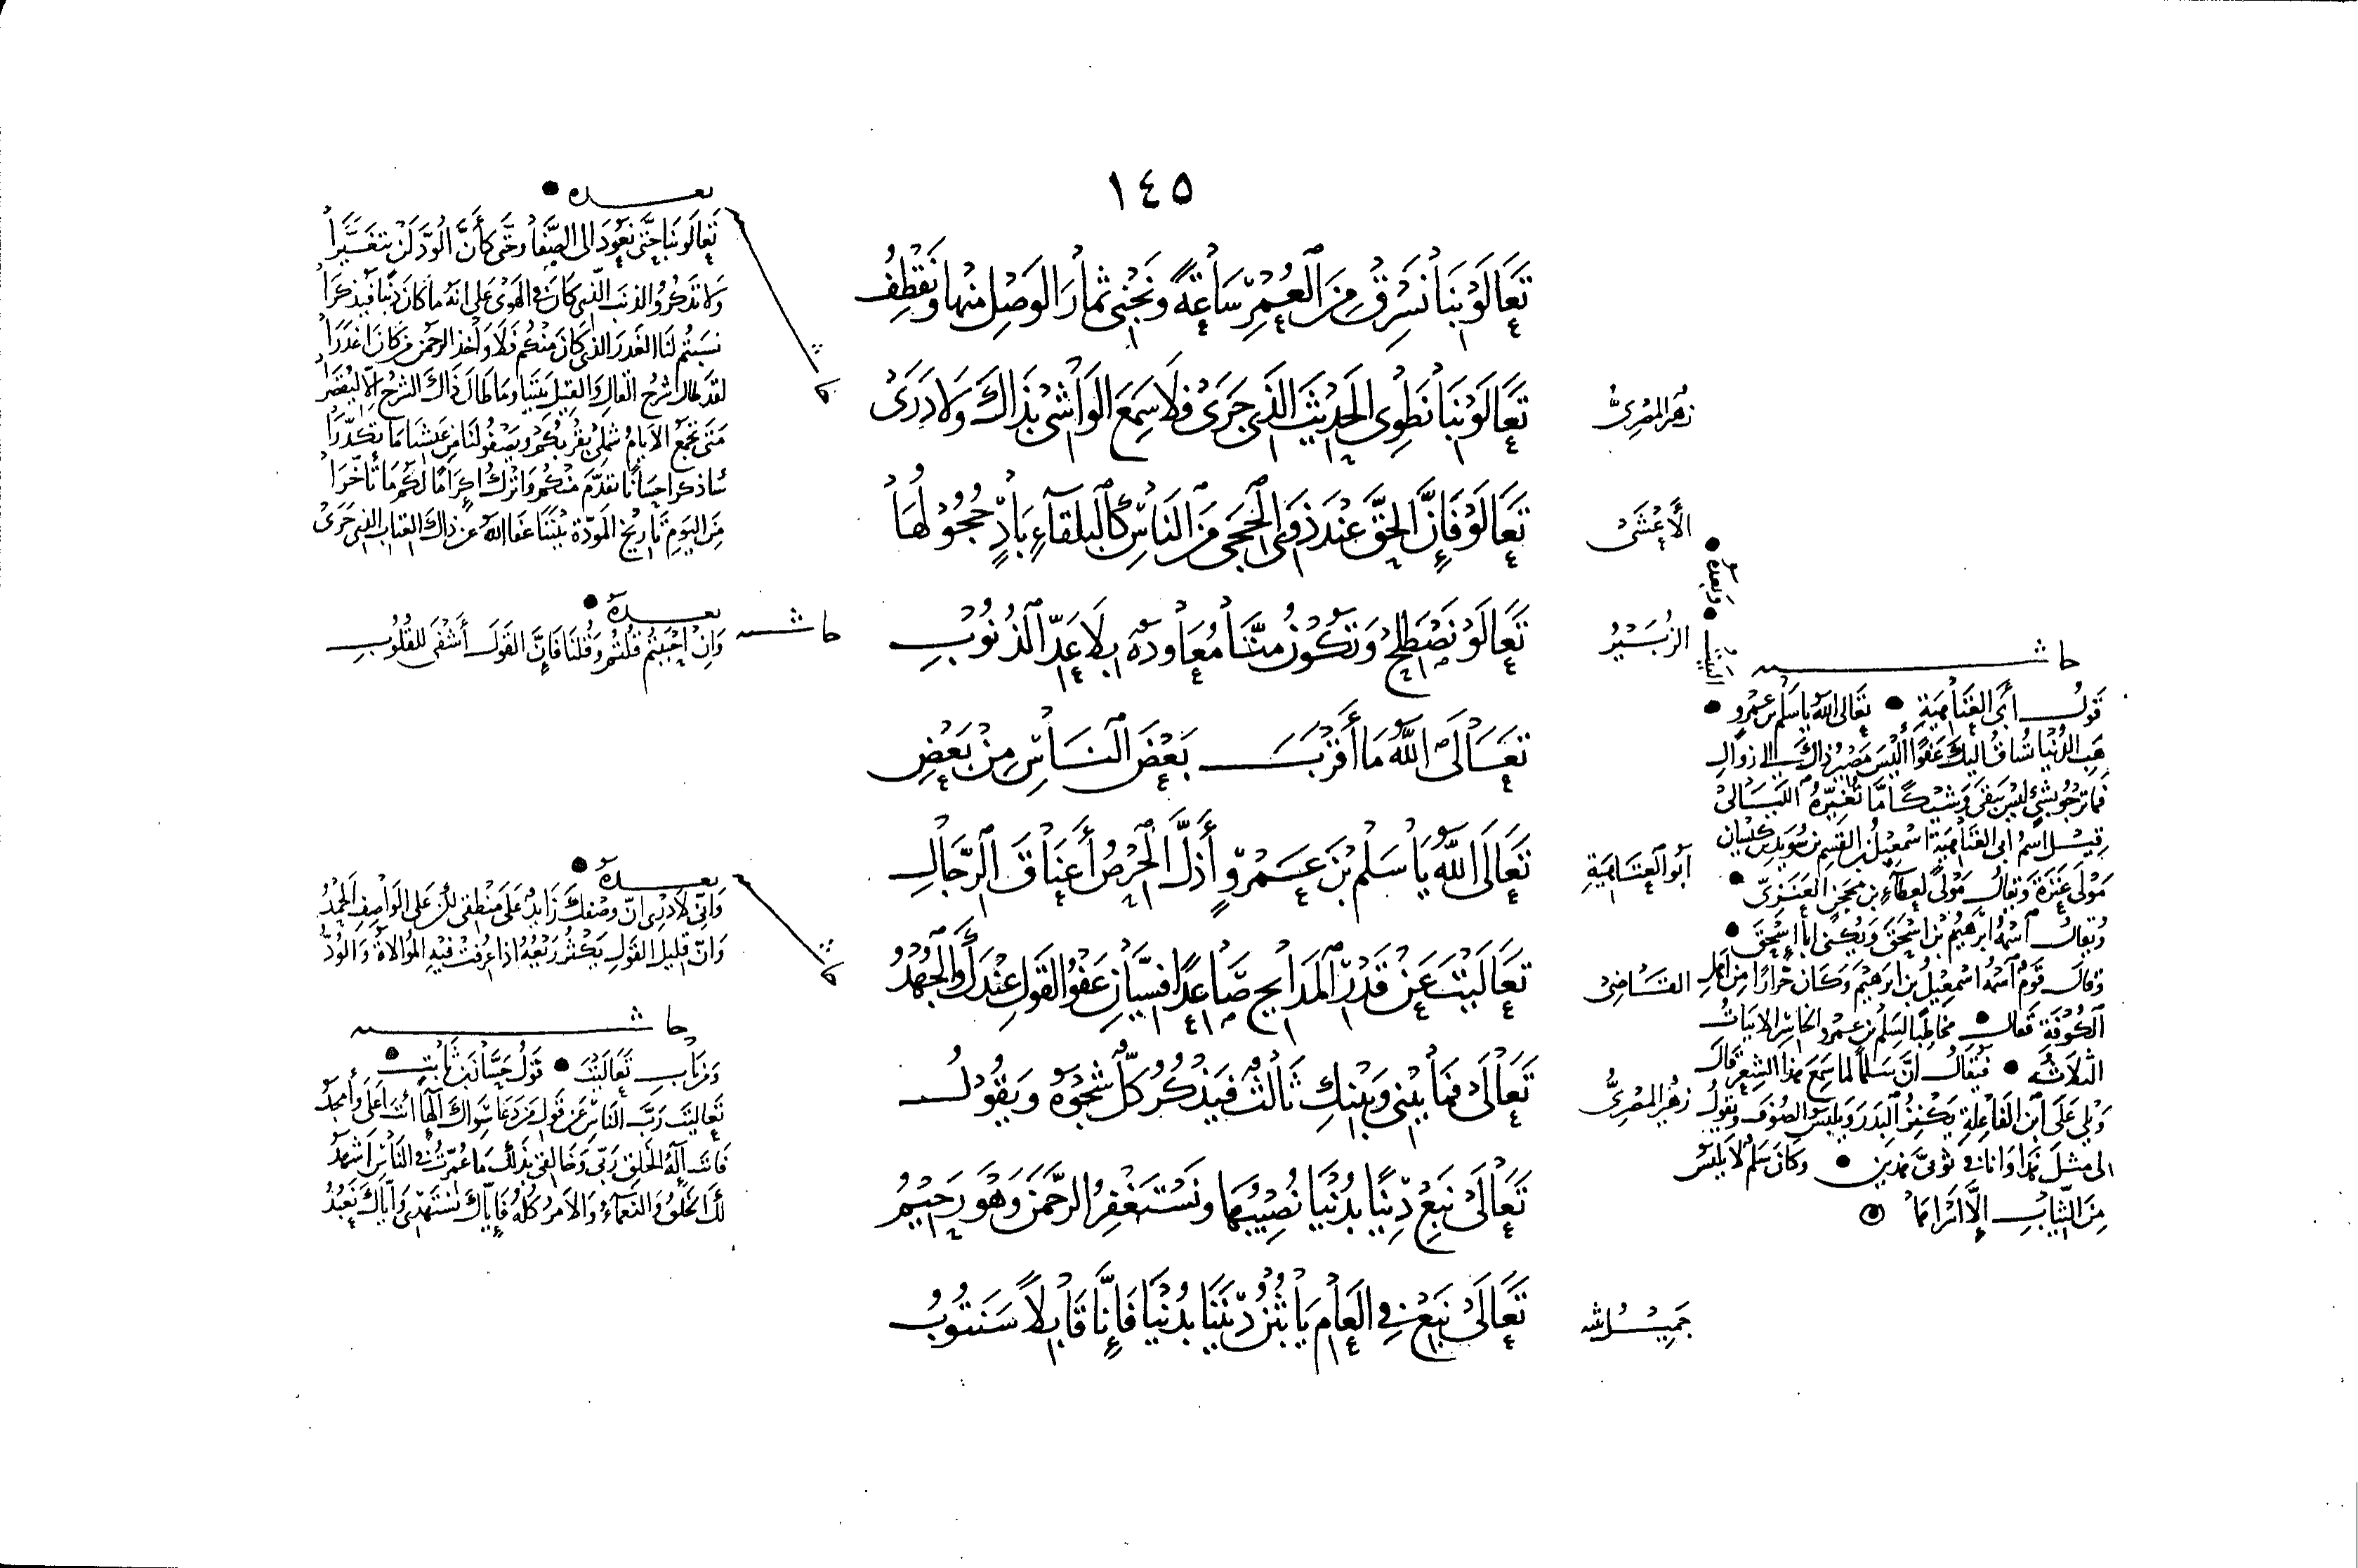 ١٤٥
تَعَالَوْ بِنَا نَسْرِقْ مِنَ الْعُمْرِ سَاعَةً وَنَجْنِي ثِمَارَ الوَصْلِ مِنْهَا وَنَقْطِفُ
زهير المصريُّ
تَعَالَوْ بِنَا نَطْوِي الحَدِيثَ الَّذي جَرَى فَلَا سَمِعَ الوَاشِي بِذَاكَ وَلَا دَرَى
الأَعْشَى
تَعَالَوْ فَإِنَّ الحَقَّ عِنْدَ ذَوِي الحِجَى مِنَ النَّاسِ كَالبَلقَاءِ بَادٍ حُجُولُهَا
الزُّبَيْرُ
تَعَالَوْ نَصْطَلِحْ وَتَكُونُ مِنَّا مُعَاوَدَةٌ بِلَا عَدِّ الذُّنُوبِ
تَعَالَى اللَّهُ مَا أَقْرَبَ بَعْضَ النَّاسِ مِنْ بَعْضِ
أبو العَتَاهِيَةِ
تَعَالَى اللَّهُ يَا سَلْمُ بْنَ عَمْرٍو أَذَلَّ الْحِرْصُ أَعْنَاقَ الرِّجَالِ
القَاضِي
تَعَالَيْتَ عَنْ قَدْرِ المَدَايِحِ صَاعِدًا فَسِيَّانِ عَفْوُ القَوْلِ عِنْدَكَ وَالجَهْدُ
زهير المصريُّ
تَعَالَى فَمَا بَيْنِي وَبَيْنِكِ ثَالِثٌ فَيَذْكُرُ كُلٌّ شَجْوَهُ وَيَقُولُ
تَعَالَى نَبِعْ دِيْنًا بِدُنْيَا نُصِيْبُهَا وَنَسْتَغْفِرُ الرَّحْمَنَ وَهُوَ رَحِيْمُ
جَمِيْلٌ
تَعَالَى نَبِعْ فِي العَامِ يَا بَثْنُ دِيْنَنَا بِدُنْيَا فَإِنَّا قَابِلاً سَنَتُوبُ
بعده
تَعَالَو بنَا حَتَّى نَعُودَ الى الصَّفَا وحَتَّى كأَنَّ الوُدَّ لَنْ يتَغَيَّرَا
وَلا تذكروا الذنبَ الّذي كانَ في الهَوَى عَلى انهُ مَا كانَ ذَنبًا فيُذكَرَا
نسَبتُم لنَا الغَدرَ الذي كانَ مِنكُم فَلا وَاخذ الرحمن مَن كانَ اغدَرَا
لقد طالَ شرحُ القالِ وَالقيلِ بَيْننا وَما طَالَ ذَاكَ الشرحُ الّا ليُقصَرا
مَتَى تجمَعُ الأيامُ شملي بقُربِكم ويَصفُو لنَا من عَيشنَا مَا تكدّرَا
سَاذكر احسَانًا تقدَّم منكُم وَاترُكُ اكرَامًا لكُم مَا تأخَّرَا
مِنَ اليَومِ تَاريخُ الموَدّة بينَنا عَفَا اللهُ عن ذَاكَ العتَابِ الذي جَرَى
بعده
حاشـ وَانْ أَحْبَبتُم قُلتُم وَقُلنَا فَإِنَّ القَولَ أَشفَى للقُلُوبِ
بعده
وَانّي لاَدري انّ وَصْفكَ زَايدٌ عَلى مَنطِقي لكن عَلى الوَاصِفِ الجَهدُ
وَانّ قليلَ القَولِ يَكْثُرُ رَيْعُهُ اذا عُرِفتْ فيْهِ المُوَالاةُ وَالوُدُّ
حاشـ
وَمن باب تَعَالَيْتَ قَولُ حَسَّانَ بن ثَابتٍ
تَعَاليتَ رَبَّ النَاسِ عَن قَولِ مَن دَعَا سِوَاكَ الهًا أنتَ أعلَى وَأمجَدُ
فَانتَ إلَهُ الخَلقِ رَبّي وَخَالقي بذَلكَ مَا عُمّرتُ في النَّاسِ اَشهَدُ
لكَ الخَلقُ وَالنعمَاءُ وَالأمرُ كُلّهُ فَإيَّاكَ نَستَهدي وَايَّاكَ نَعبُدُ
وبعده
البيتان
حاشـ
قَولُ أبي العَتَاهِيَةِ تَعَالَى اللهُ يا سَلمُ بن عَمْرٍو
هَبِ الدُّنْيا تُسَاقُ اليكَ عَفوًا أَلَيْسَ مَصِيْرُ ذَاكَ الى زوالِ
فَمَا ترجُو بشيءٍ ليسَ يبقَى وَشيكًا مَّا تُغَيِّرُهُ اللّيَالي
قيْلَ اسمُ ابي العَتَاهيَةِ اسْمعِيلُ بن القسم بن سُوَيد بن كيْسَان
مَولَى عَنَزَةَ وَيقالُ مَوْلًى لعَطَاءِ بن مِحجَنٍ العَنَزيّ
ويُقالُ اسْمُهُ ابرَاهيمُ بْنُ اسْحَقَ وَيُكنى ابَا إسْحَقَ
وقالَ قَومٌ اسمُهُ اسْمعِيلُ بن ابرَهيْمَ وَكانَ جَرَّارًا مِن اَهلِ
الكُوفَةِ فقالَ مخاطبًا لسَلم بن عمرو الخاسِر الابيَاتَ
الثَلاثَةَ فيُقالُ انَّ سَلمًا لما سَمعَ هذا الشِعرَ قالَ
وَيلي عَلَى ابن الفَاعِلَةِ يَكنِزُ البِدَرَ وَيلبَسُ الصُوفَ وَيقولُ
لي مثلَ هذا وَانَا في ثَوبيَّ هَذين وَكانَ سَلمٌ لا يَلبَسُ
مِنَ الثِّيَابِ إلَّا